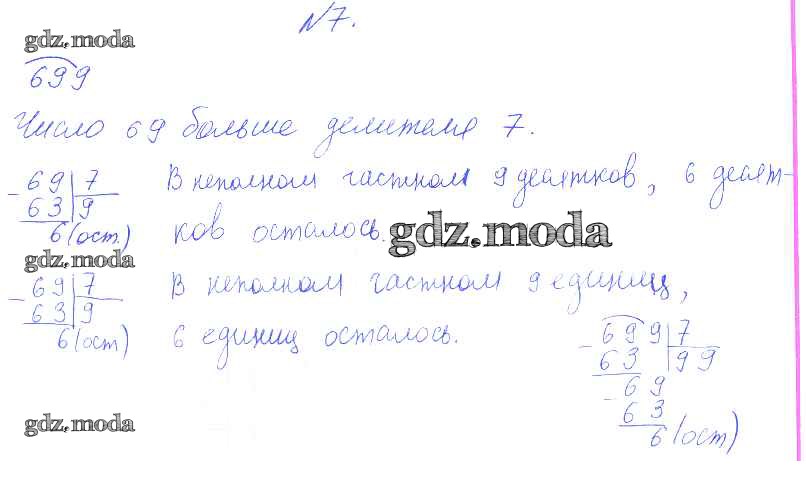 №7.
gdz.moda
699
Число 69 больше делителя 7.
- 69 | 7 В неполном частном 9 десятков, 6 десят-
63 | 9
6 (ост.) ков осталось.
gdz.moda
gdz.moda
- 69 | 7 В неполном частном 9 единиц,
63 | 9
6 (ост) 6 единиц осталось.
- 699 | 7
63 | 99
- 69
63
6 (ост)
gdz.moda